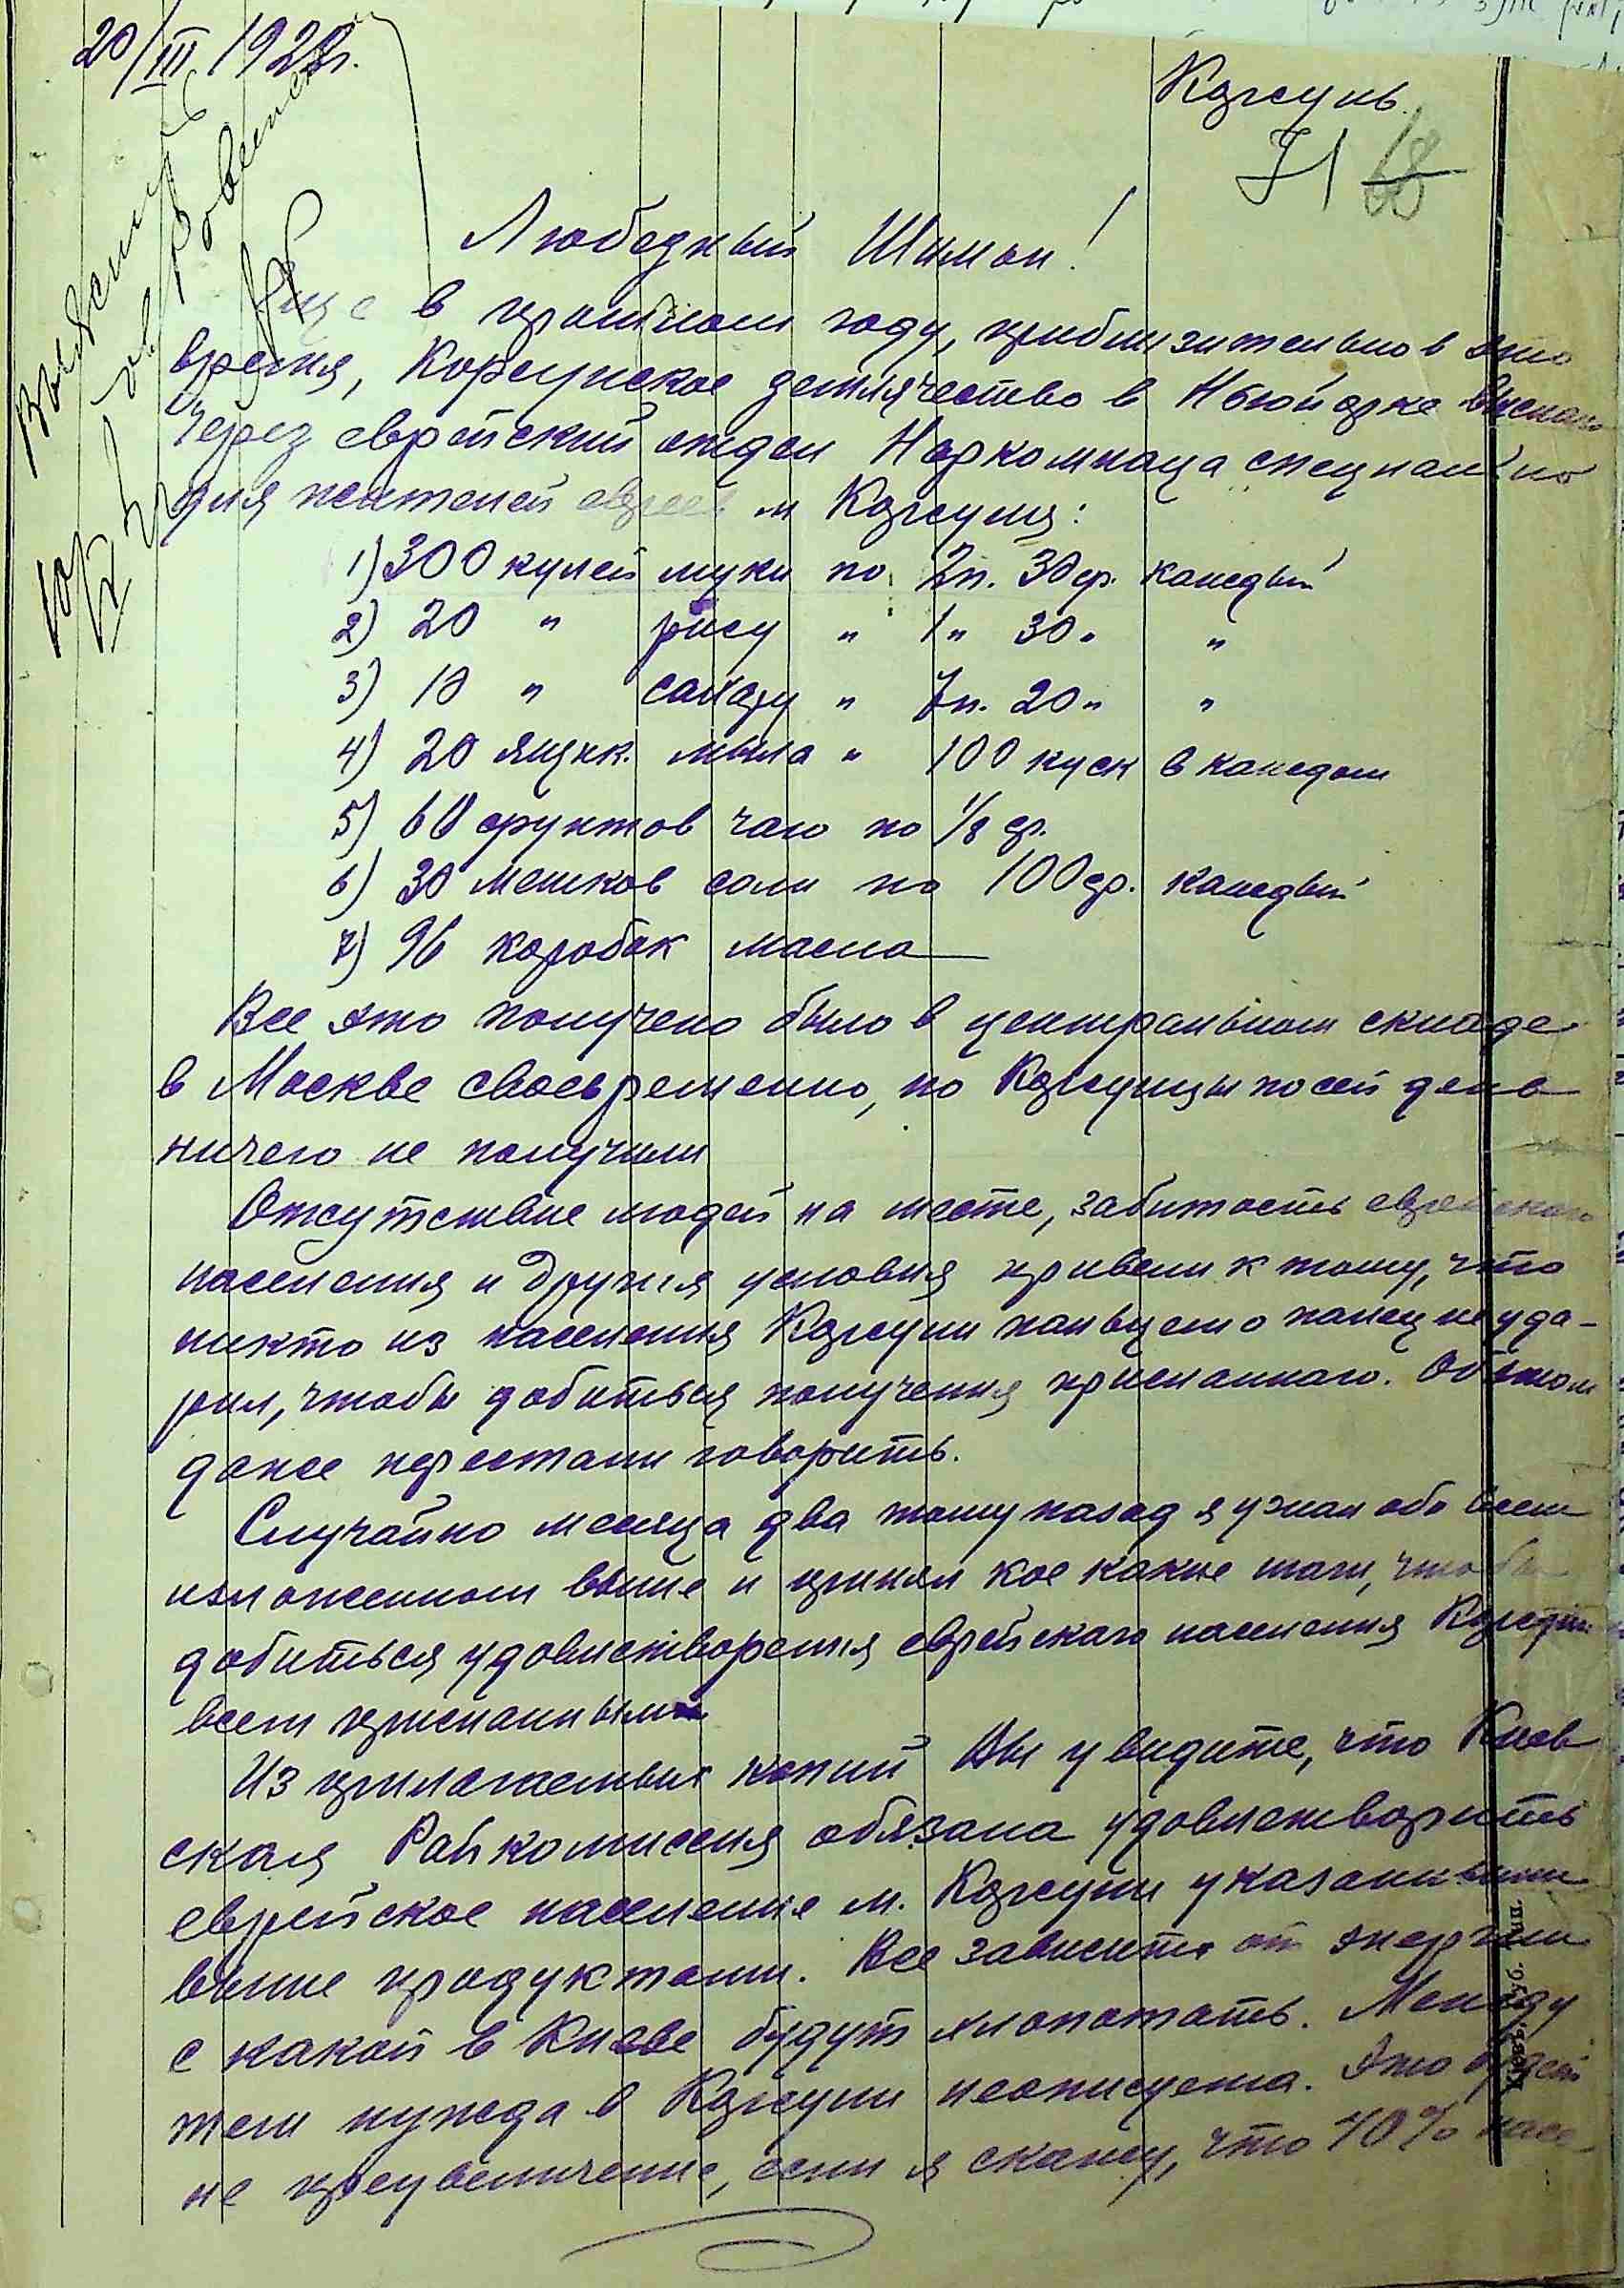 20/III 1922г.
Корсунь.
71 68
Выяснить
у тов Ровенск
Любезный Шимон!
Еще в прошлом году, приблизительно в это
время, Корсунское землячество в Нбюйорке выслало
через еврейский отдел Наркомнаца специально
для жителей евреев м Корсуня:
1) 300 кулей муки по 2п. 30ф. каждый
2) 20 " рису " 1" 30" "
3) 10 " сахару " 7п. 20" "
4) 20 ящик. мыла " 100 куск в каждом
5) 60 фунтов чаю по 1/8 ф.
6) 30 мешков соли по 100ф. каждый
7) 96 коробок масла
Все это получено было в центральном складе
в Москве своевременно, но Корсунцы по сей день
ничего не получили
Отсутствие людей на месте, забитость еврейского
населения и другия условия привели к тому, что
никто из населения Корсуни пальцем о палец не уда-
рил, чтобы добиться получения присланного. Об этом
даже перестали говорить.
Случайно месяца два тому назад я узнал обо всем
изложенном выше и принял кое какие шаги, чтобы
добиться удовлетворения еврейского населения Корсуни
всем присланным
Из прилагаемых копий Вы увидите, что Киев
ская Райкомиссия обязана удовлетворить
еврейское население м. Корсуни указанными
выше продуктами. Все зависит от энергии
с какой в Киеве будут хлопотать. Между
тем нужда в Корсуни неописуема. Это будет
не преувеличение, если я скажу, что 40% насе-